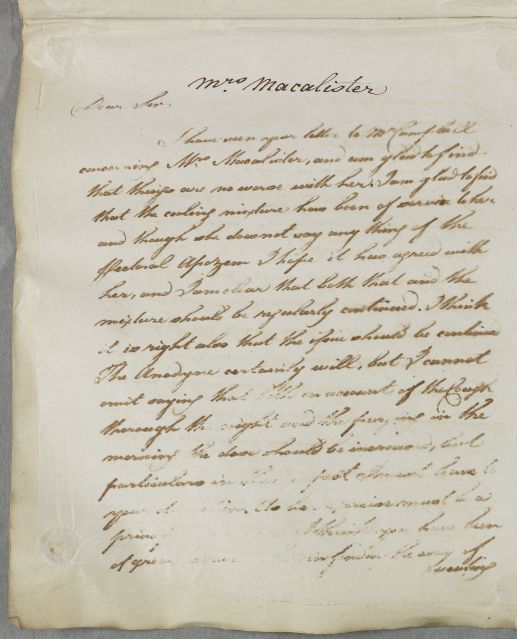 Mrs. Macalister
Dear Sir,
I have seen your letter to Mr Campbell
concerning Mrs. Macalister, and am glad to find
that things are no worse with her. I am glad to find
that the cooling mixture has been of service to her
and though she does not say any thing of the
Pectoral Apozem I hope it has agreed with
her, and I am clear that both that and the
mixture should be regularly continued. I think
it is right also that the issue should be continue
The Anodyne certainly will, but I cannot
omit saying that both on account of the Cough
thorough the night and the purging in the
morning the dose should be increased, but
particulars in this respect I must leave to
you
must be a
I think you have been
the way of